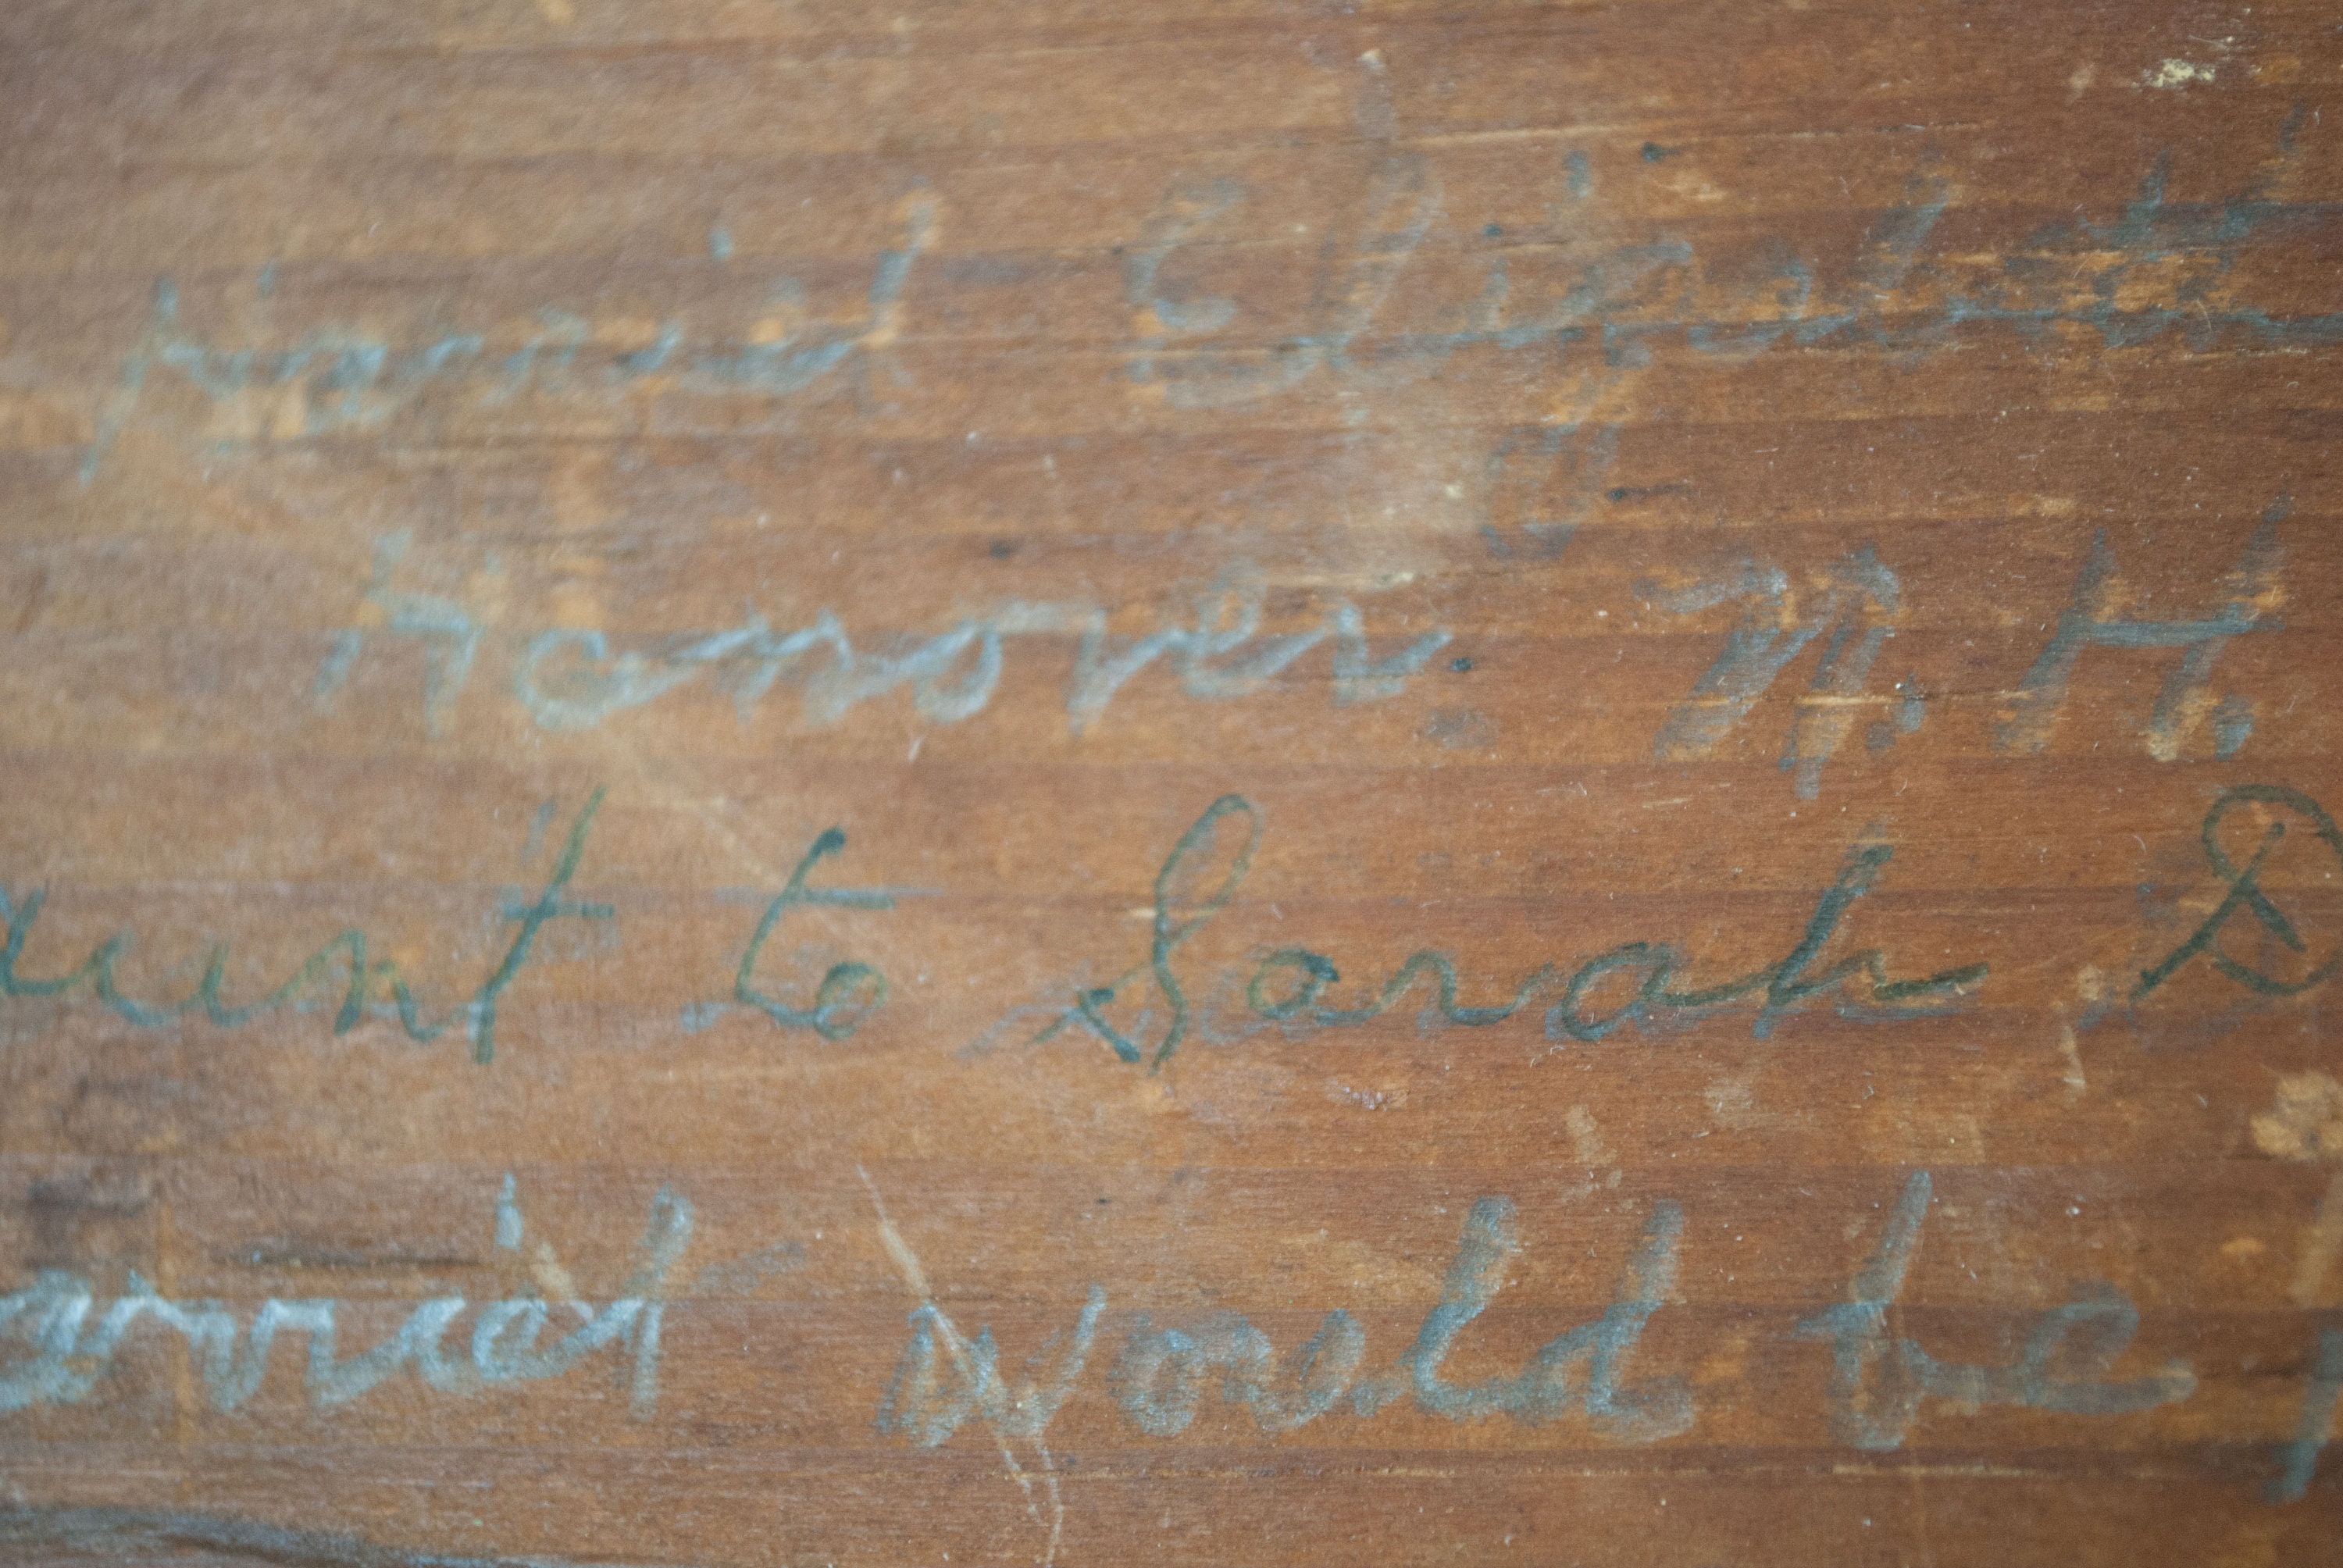 Harriet Elizabeth
Hanover N. H.
aunt to Sarah
Harriet would be